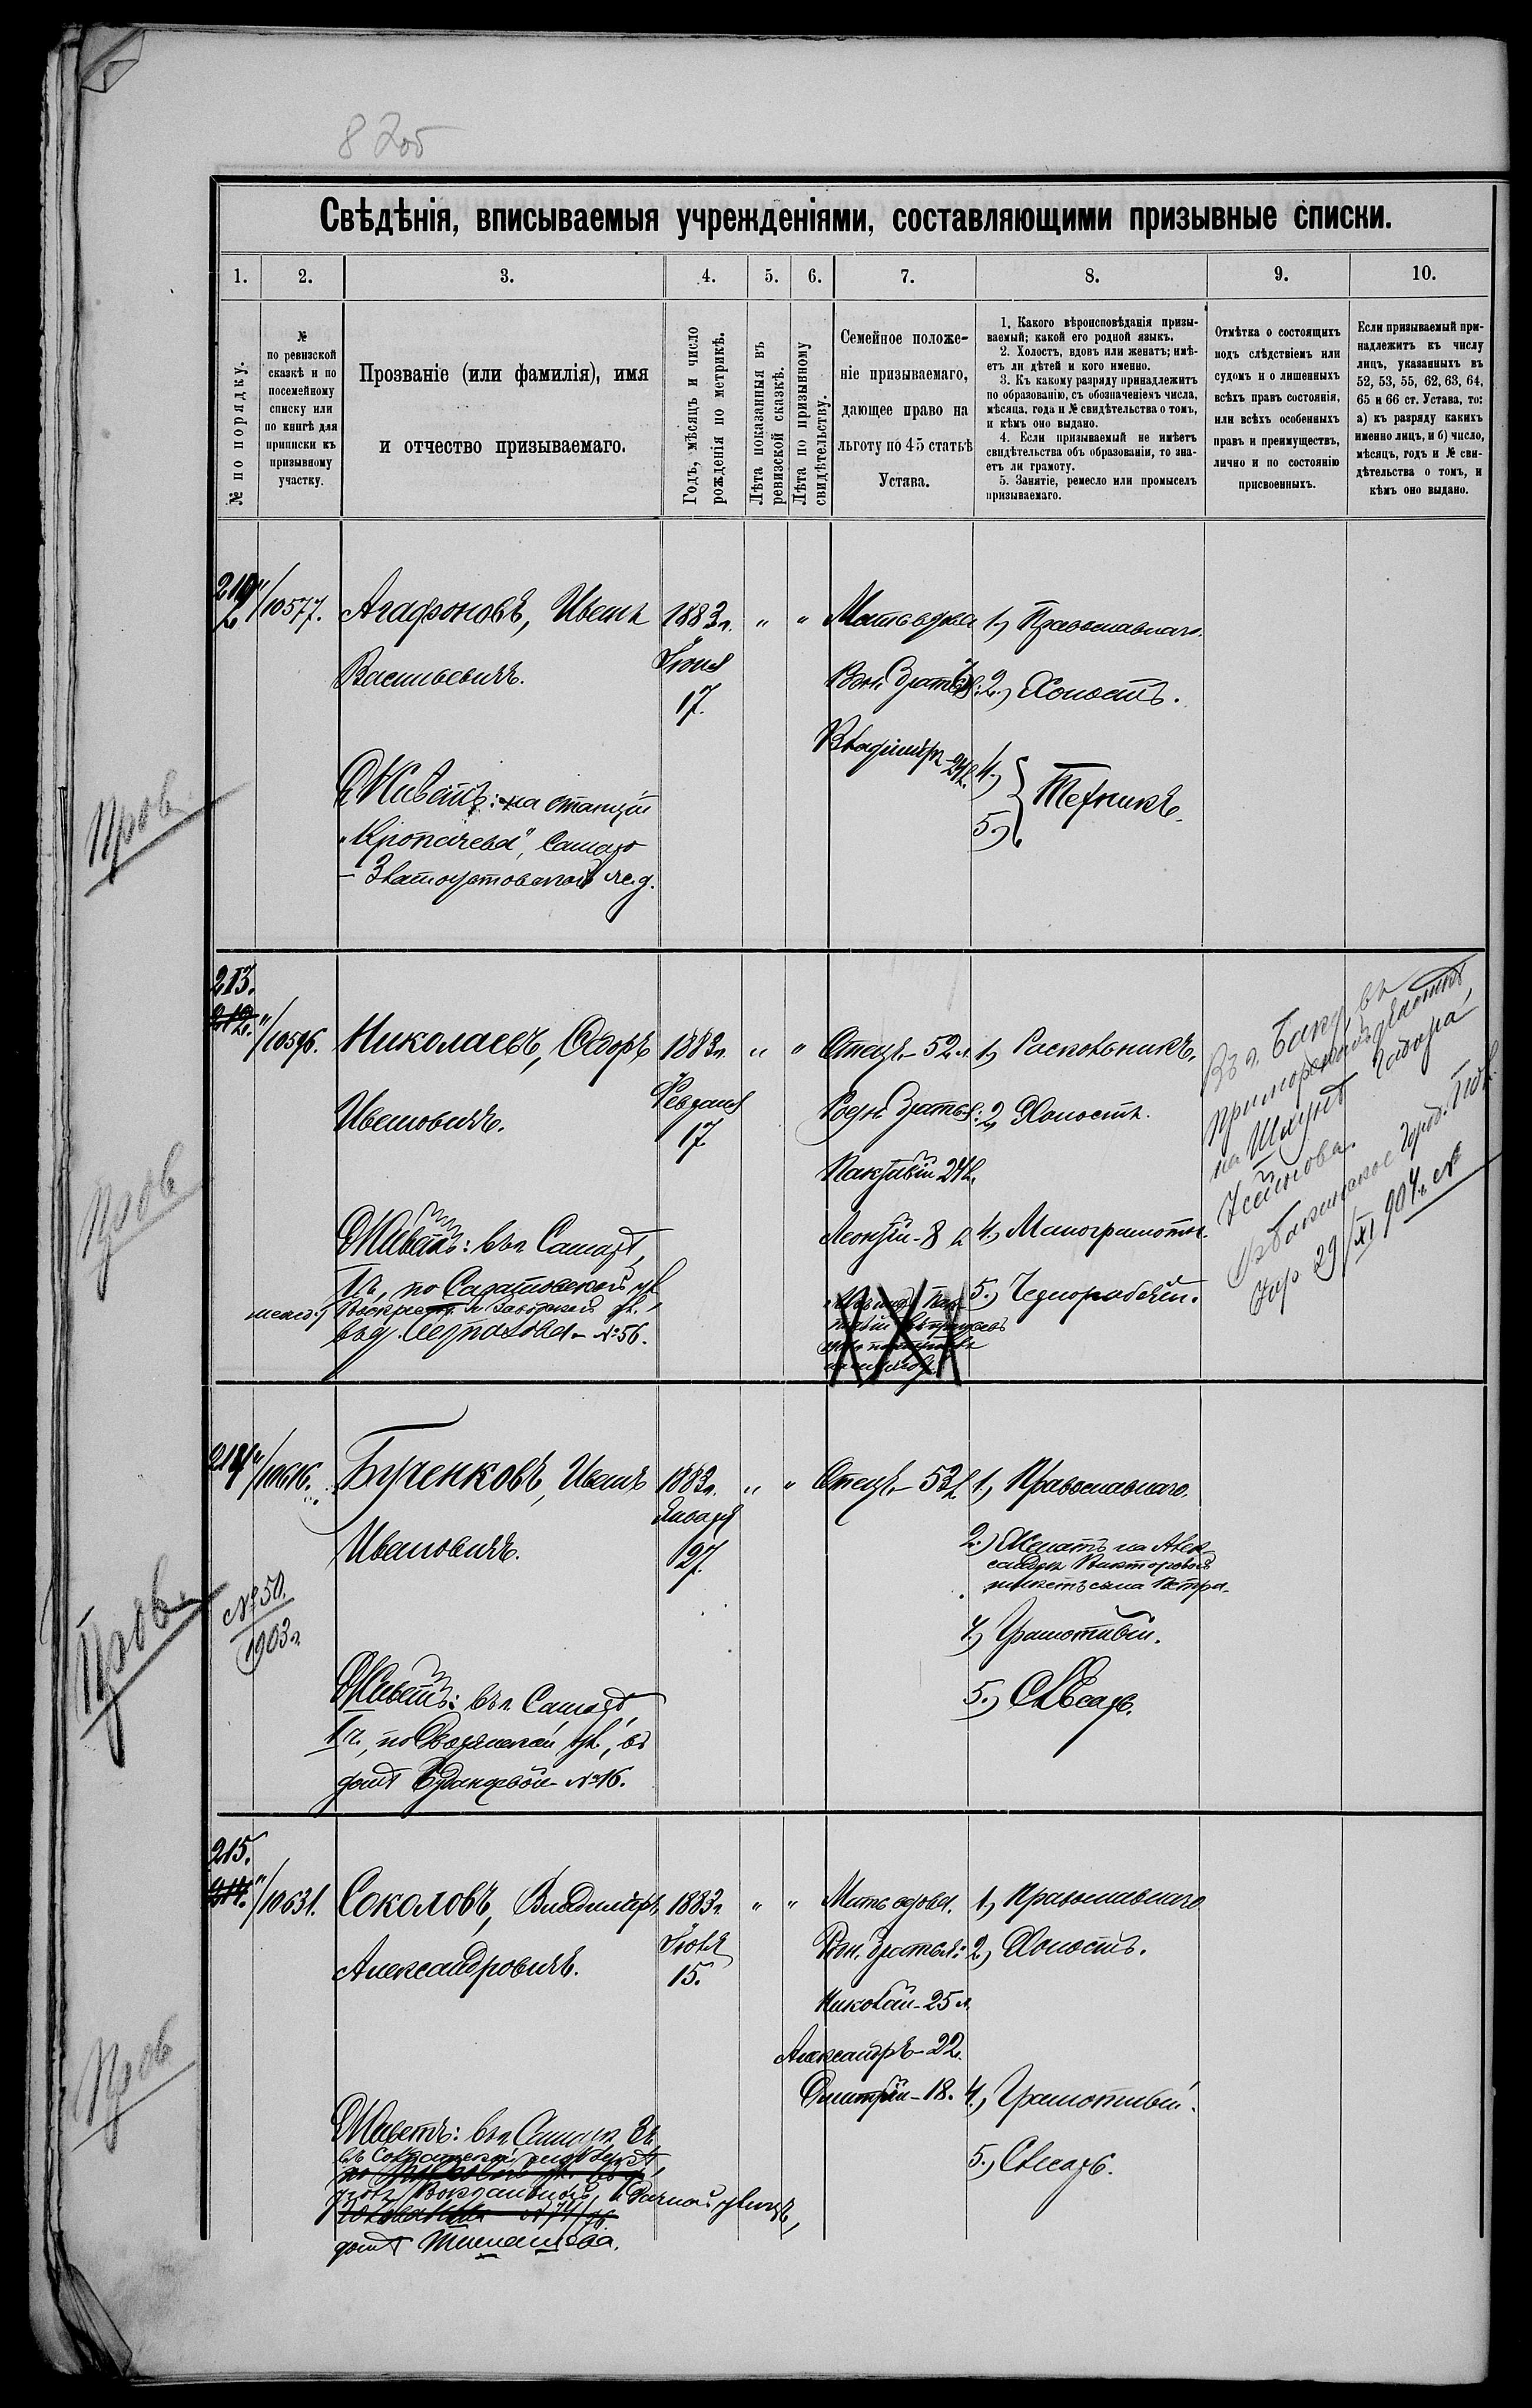 82об
Свѣдѣнія, вписываемыя учрежденіями, составляющими призывные списки.
1. 2. 3. 4. 5. 6. 7. 8. 9. 10.
№ по порядку.
№
по ревизской
сказкѣ и по
посемейному
списку или
по книгѣ для
приписки къ
призывному
участку.
Прозваніе (или фамилія), имя
и отчество призываемаго.
Годъ, мѣсяцъ и число
рожденія по метрикѣ.
Лѣта показанныя въ
ревизской сказкѣ.
Лѣта по призывному
свидѣтельству.
Семейное положе-
ніе призываемаго,
дающее право на
льготу по 45 статьѣ
Устава.
1. Какого вѣроисповѣданія призы-
ваемый; какой его родной языкъ.
2. Холостъ, вдовъ или женатъ; имѣ-
етъ ли дѣтей и кого именно.
3. Къ какому разряду принадлежитъ
по образованію, съ обозначеніемъ числа,
мѣсяца, года и № свидѣтельства о томъ,
и кѣмъ оно выдано.
4. Если призываемый не имѣетъ
свидѣтельства объ образованіи, то зна-
етъ ли грамоту.
5. Занятіе, ремесло или промыселъ
призываемаго.
Отмѣтка о состоящихъ
подъ слѣдствіемъ или
судомъ и о лишенныхъ
всѣхъ правъ состоянія,
или всѣхъ особенныхъ
правъ и преимуществъ,
лично и по состоянію
присвоенныхъ.
Если призываемый при-
надлежитъ къ числу
лицъ, указанныхъ въ
52, 53, 55, 62, 63, 64,
65 и 66 ст. Устава, то:
а) къ разряду какихъ
именно лицъ, и б) число,
мѣсяцъ, годъ и № сви-
дѣтельства о томъ, и
кѣмъ оно выдано.
"/10577.
Агафоновъ, Иванъ
Васильевичъ.
Живетъ: на станціи
"Кропачево", Самаро
-Златоустовской ж.д.
1883г.
Іюня
17.
" "
Мать вдова
Род. братья:
Владиміръ-24л.
1, Православнаго.
2, Холостъ.
4,
5,
Техникъ.
Пров
213.
212.
"/10596.
Николаевъ, Ѳедоръ
Ивановичъ.
Живетъ: въ г. Самарѣ,
по Саратовской ул.
между Воскресен. и Заводской ул.,
№ 56.
1883г.
Февраля
17.
" "
Отецъ-52л.
Родн. братья:
Леонтій-8 л.
1, Раскольникъ.
2, Холостъ.
4, Малограмотн.
5, Чернорабочій.
Въ г. Баку, въ
на Шхунѣ
29/XI 904г. №
Пров
214
"/10616.
Бученковъ, Иванъ
Ивановичъ.
№ 50.
1903г.
Живетъ: въ г. Самарѣ
1ч., по Дворянской ул., въ
домѣ № 16.
1883г.
Января
27.
" "
Отецъ-53л.
1, Православнаго.
2, Женатъ на Алек
сандрѣ Викторовой
имѣетъ сына Петра.
4, Грамотный.
5, Слесарь.
Пров
215.
214.
"/10631.
Соколовъ, Владиміръ
Александровичъ.
Живетъ: въ г. Самарѣ 3ч.
домѣ
1883г.
Іюля
15.
" "
Мать вдова.
Род. братья:
Николай-25л.
Александръ-22.
Дмитрій-18.
1, Православнаго
2, Холостъ.
4, Грамотный.
5, Слесарь.
Пров